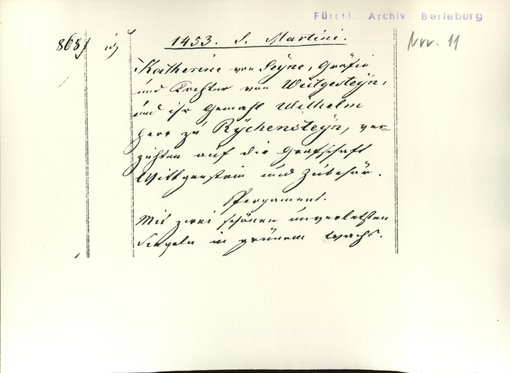 Fürstl. Archiv Berleburg
Nov. 11
868)
1453. S. Martini.
Katherine von Seyne, Gräfin
und Tochter von Witgesteyn,
und ihr Gemahl Wilhelm
Herr zu Rychensteyn, ver-
zichten auf die Grafschaft
Wittgenstein und Zubehör.
Pergament.
Mit zwei schönen unverletzten
Siegeln in grünem Wachs.